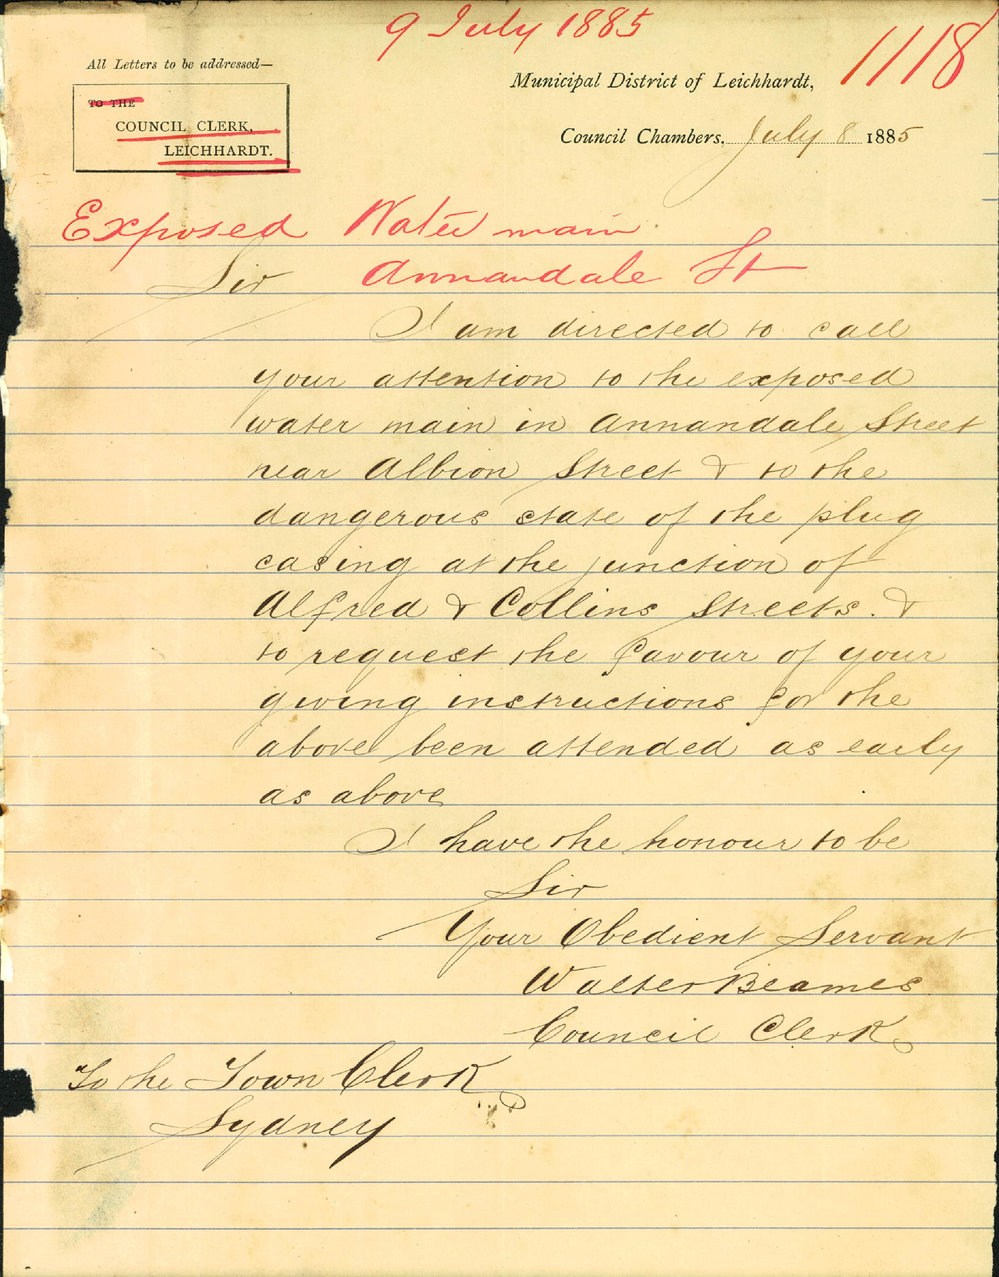 9 July 1885
1118
All Letters to be addressed—
TO THE
COUNCIL CLERK,
LEICHHARDT.
Municipal District of Leichhardt,
Council Chambers, July 8 1885
Exposed Water main
Annandale St
Sir
I am directed to call
your attention to the exposed
water main in Annandale Street
near Albion Street & to the
dangerous state of the plug
casing at the junction of
Alfred & Collins Streets. &
to request the favour of your
giving instructions for the
above been attended as early
as above
I have the honour to be
Sir
Your Obedient Servant
Walter Beames
Council Clerk
To the Town Clerk
Sydney